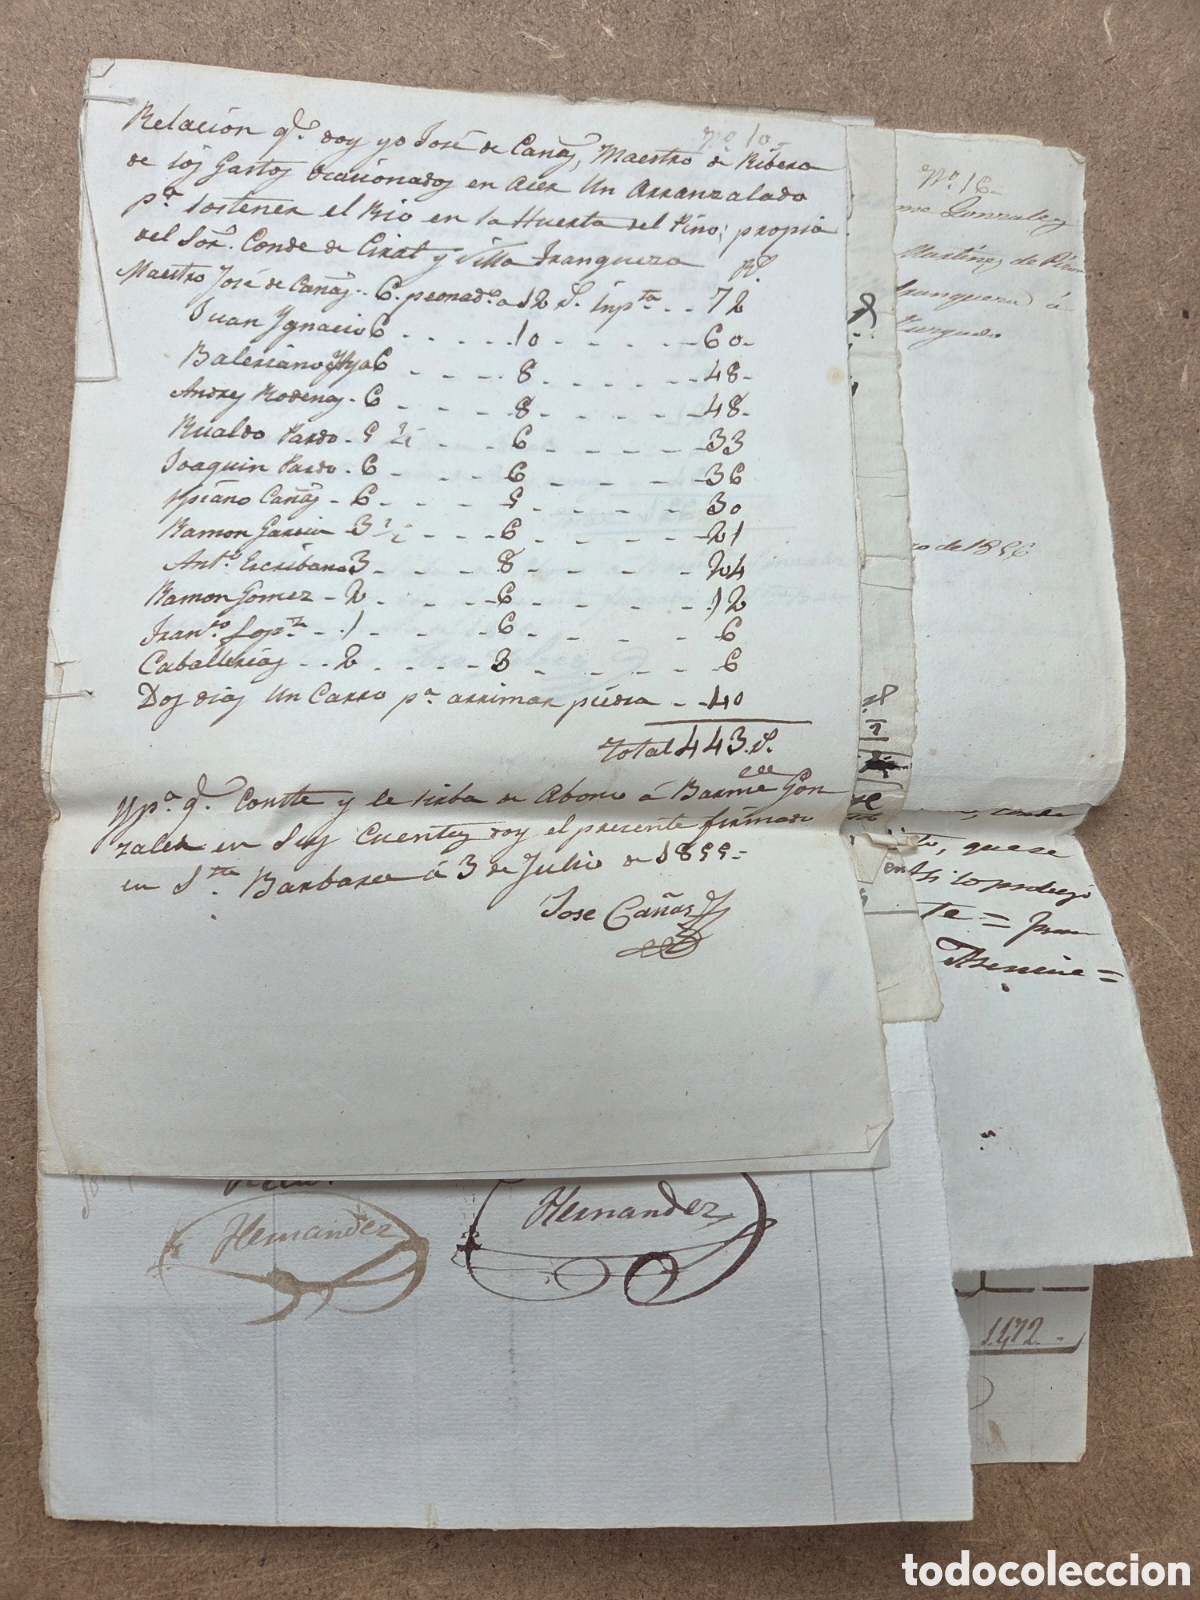 Nº 10
Relación q.e doy yo José de Cañas, Maestro de Ribera
de los Gastos Ocacionados en Acer Un Arranzalado
p.a Sostener el Rio en la Huerta del Pino, propia
del Sor. Conde de Cirat y Villa Franqueza R.s
Maestro José de Cañas - 6 peonad.s a 12 r.s inp.ta - 72
Juan Ygnacio 6 - 10 - 60-
Baleriano Hijo 6 - 8 - 48-
Andres Rodenas - 6 - 8 - 48-
Rualdo Pardo - 5 ½ - 6 - 33
Joaquin Pardo - 6 - 6 - 36
Ypiano Cañas - 6 - 5 - 30
Ramon Garcia - 3 ½ - 6 - 21
Ant.o Escribano 3 - 8 - 24
Ramon Gomez - 2 - 6 - 12
Fran.co Lop.z - 1 - 6 - 6
Caballerias - 2 - 3 - 6
Dos dias Un Carro p.a arrimar piedra - 40
Total 443 r.s
Y p.a q.e Conste y le sirba de Abono á Barme Gon
zalez en Sus Cuentas doy el presente firmado
en S.ta Barbara á 3 de Julio de 1855=
Jose Cañas
Nº 16-
Gonzalez
Martinez de
Franqueza á
de 1856
que se
Asi lo produjo
te = Juan
=
Hernandez
Hernandez
1.472.-
todocoleccion